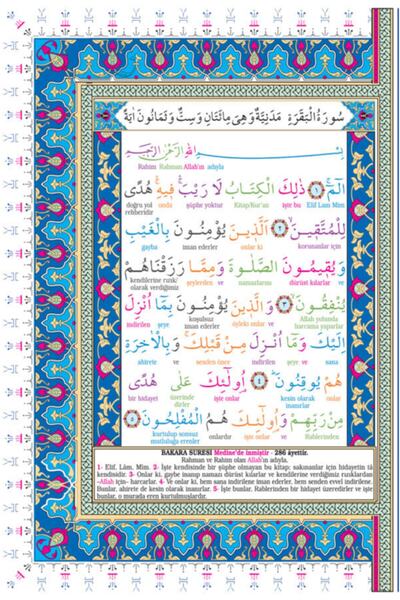 سُورَةُ الْبَقَرَةِ مَدَنِيَّةٌ وَهِيَ مِائَتَانِ وَسِتٌّ وَثَمَانُونَ اٰيَةً
بِسْمِ اللّٰهِ الرَّحْمٰنِ الرَّحٖيمِ
Rahim Rahman Allah'ın adıyla
الٓمٓ ﴿١﴾ ذٰلِكَ الْكِتَابُ لَا رَيْبَ فٖيهِ هُدًى
doğru yol rehberidir onda şüphe yoktur Kitap/Kur'an işte bu Elif Lam Mim
لِلْمُتَّقٖينَ ﴿٢﴾ اَلَّذٖينَ يُؤْمِنُونَ بِالْغَيْبِ
gayba iman ederler onlar ki korunanlar için
وَيُقٖيمُونَ الصَّلٰوةَ وَمِمَّا رَزَقْنَاهُمْ
kendilerine rızık/ olarak verdiğimiz şeylerden ve namazlarını dürüst kılarlar ve
يُنْفِقُونَ ﴿٣﴾ وَالَّذٖينَ يُؤْمِنُونَ بِمَٓا اُنْزِلَ
indirilen şeye koşulsuz iman ederler öyleki onlar ve Allah yolunda harcama yaparlar
اِلَيْكَ وَمَٓا اُنْزِلَ مِنْ قَبْلِكَ وَبِالْاٰخِرَةِ
ahirete ve senden önce indirilen şeye ve sana
هُمْ يُوقِنُونَ ﴿٤﴾ اُو۬لٰٓئِكَ عَلٰى هُدًى
bir hidayet üzerinde dirler işte onlar kesin olarak inanırlar onlar
مِنْ رَبِّهِمْ وَاُو۬لٰٓئِكَ هُمُ الْمُفْلِحُونَ ﴿٥﴾
kurtulup sonsuz mutluluğa erenler onlardır işte onlar ve Rablerinden
BAKARA SURESİ Medine'de inmiştir - 286 âyettir.
Rahman ve Rahim olan Allah'ın adıyla.
1- Elif, Lâm, Mim. 2- İşte kendisinde bir şüphe olmayan bu kitap; sakınanlar için hidayetin tâ
kendisidir. 3- Onlar ki, gaybe inanıp namazı dürüst kılarlar ve kendilerine verdiğimiz rızıklardan
-Allah için- harcarlar. 4- Ve onlar ki, hem sana indirilene iman ederler, hem senden evvel indirilene.
Bunlar, ahirete de kesin olarak inanırlar. 5- İşte bunlar, Rablerinden bir hidayet üzeredirler ve işte
bunlar, o murada eren kurtulmuşlardır.